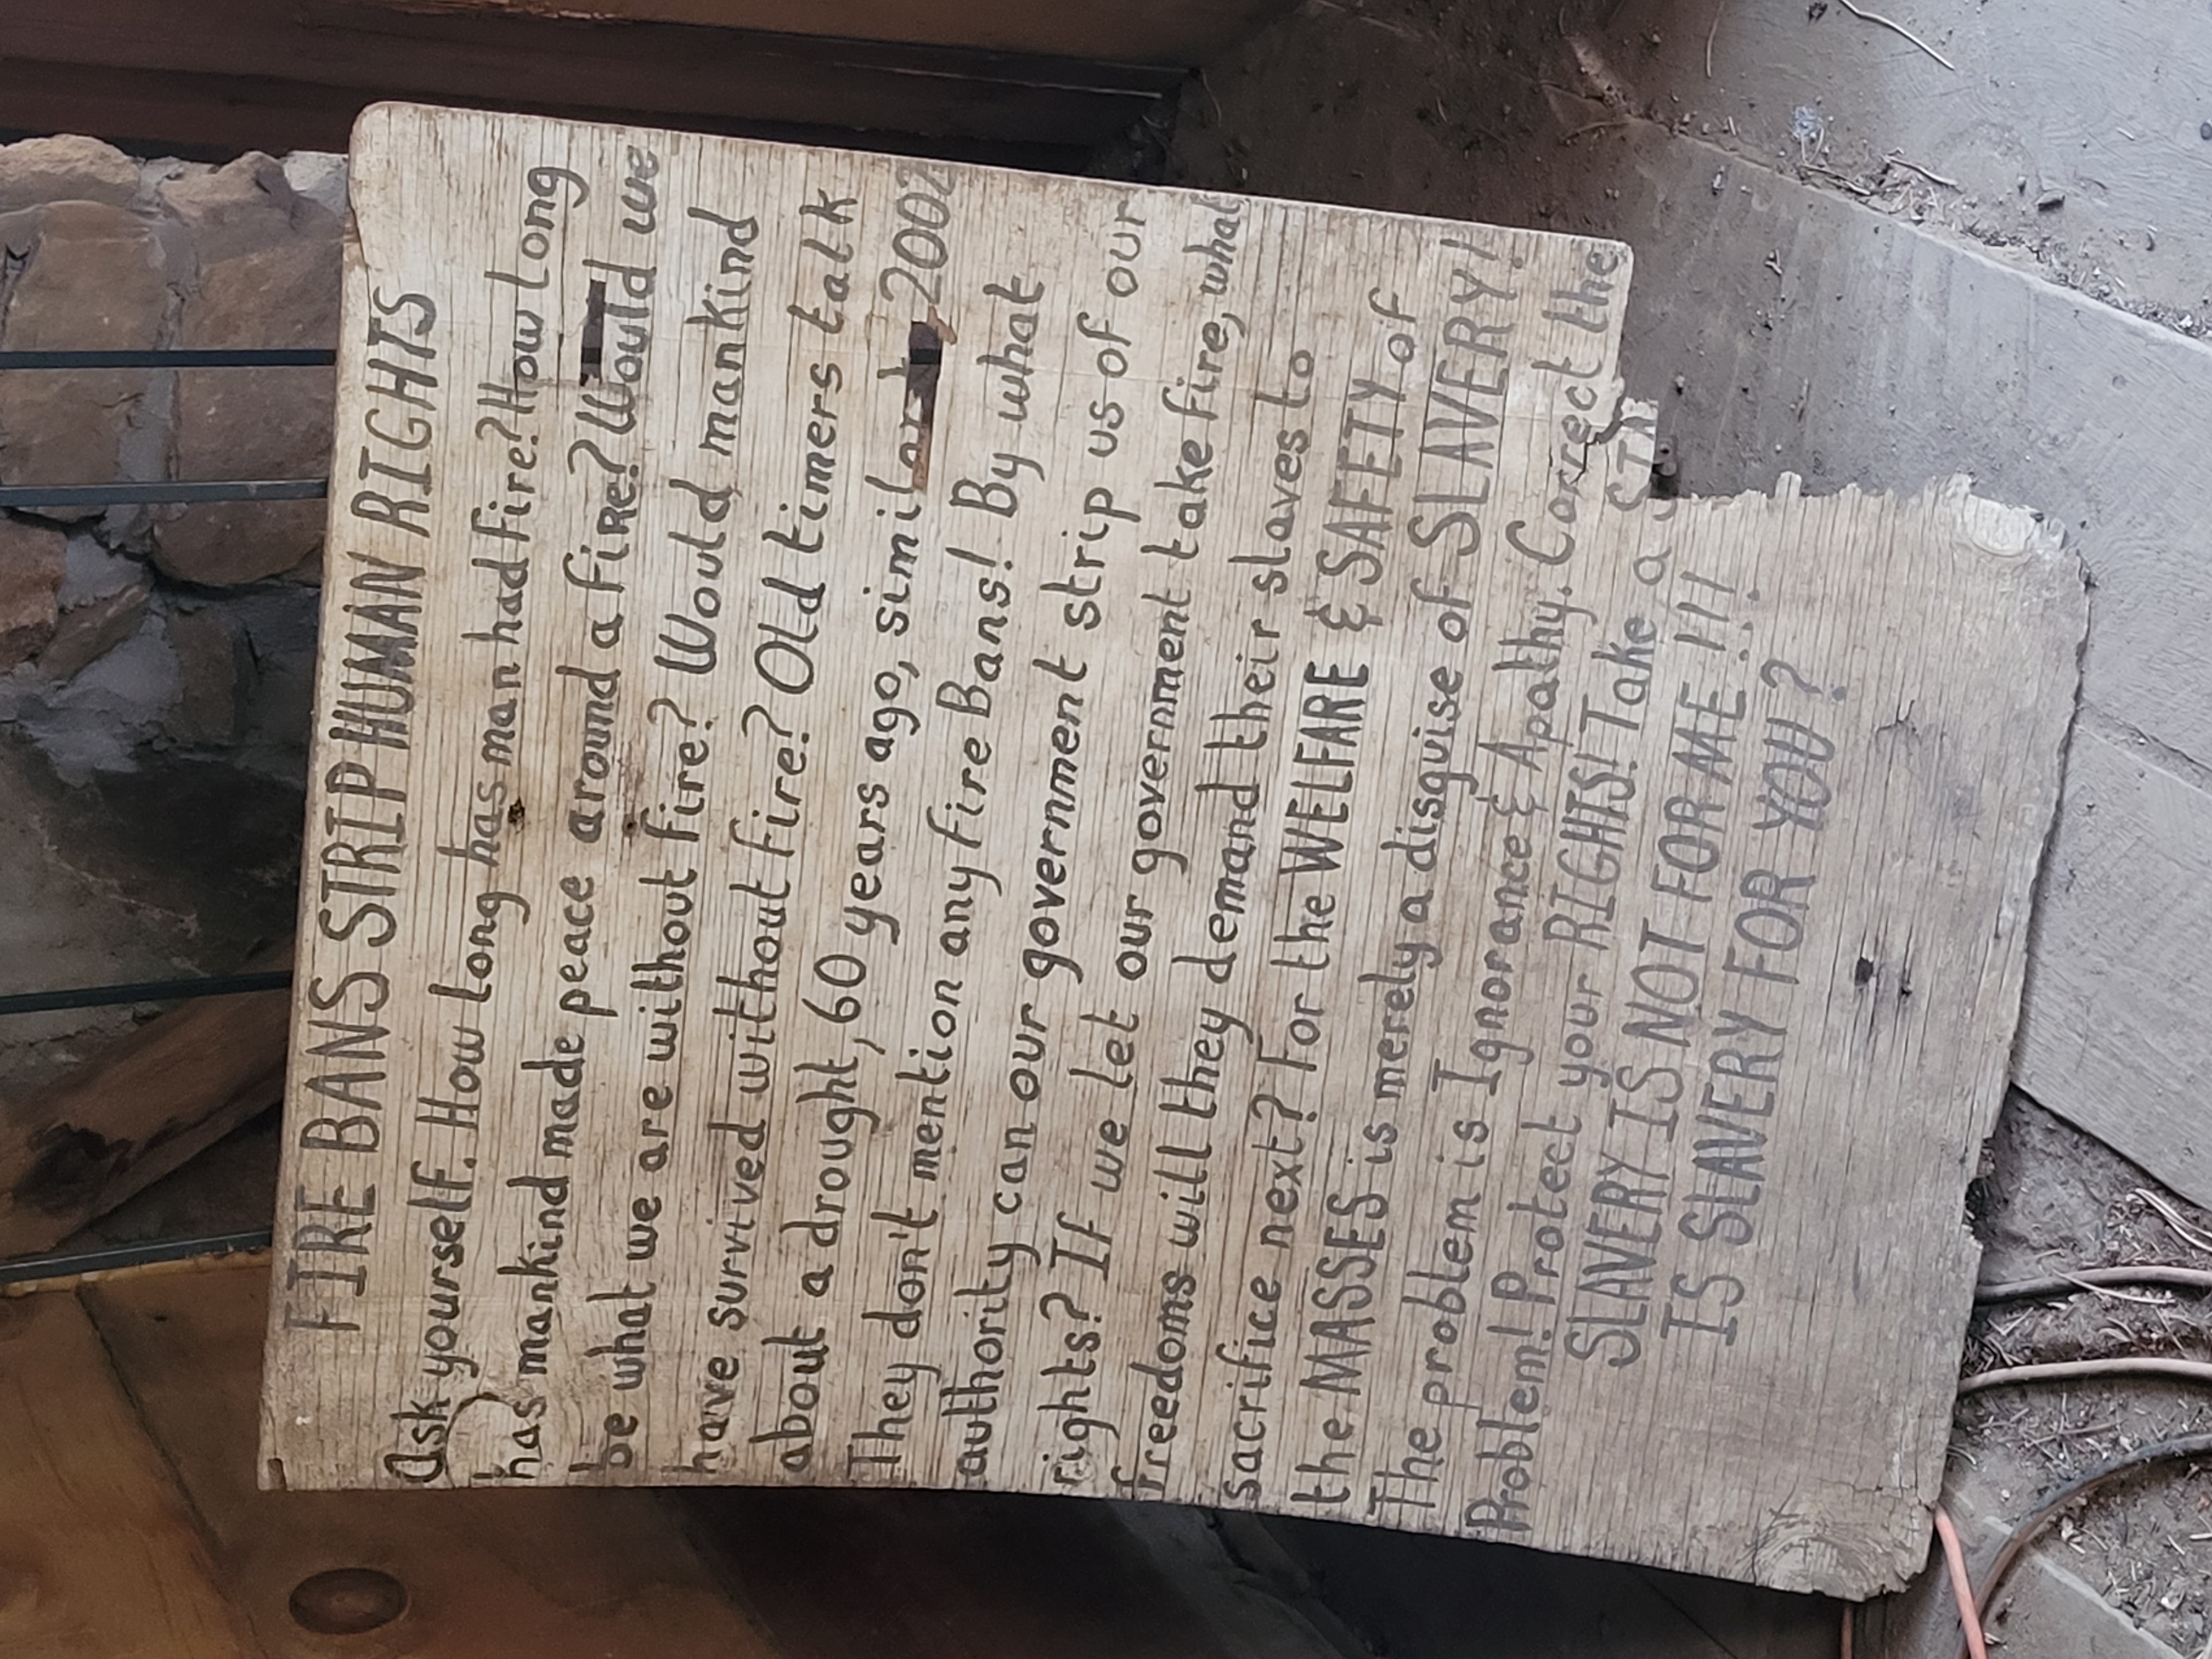 FIRE BANS STRIP HUMAN RIGHTS
Ask yourself. How long has man had fire? How long
has mankind made peace around a fire? Would we
be what we are without fire? Would mankind
have survived without fire? Old timers talk
about a drought, 60 years ago, similar 2002
They don't mention any fire Bans! By what
authority can our government strip us of our
rights? If we let our government take fire, what
freedoms will they demand their slaves to
sacrifice next? For the WELFARE & SAFETY of
the MASSES is merely a disguise of SLAVERY!
The problem is Ignorance & Apathy. Correct the
Problem! Protect your RIGHTS! Take a STA
SLAVERY IS NOT FOR ME!!!
IS SLAVERY FOR YOU?